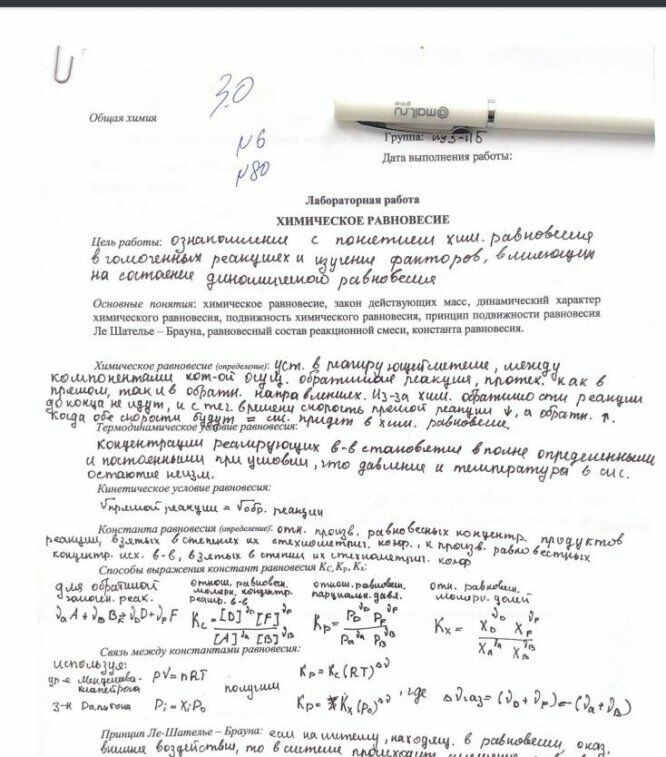 3.0
Общая химия
@mail.ru group
Группа: ИУ3-11Б
N6
Дата выполнения работы:
N80
Лабораторная работа
ХИМИЧЕСКОЕ РАВНОВЕСИЕ
Цель работы: ознакомление с понятием хим. равновесия
в гомогенных реакциях и изучение факторов, влияющих
на состояние динамического равновесия
Основные понятия: химическое равновесие, закон действующих масс, динамический характер
химического равновесия, подвижность химического равновесия, принцип подвижности равновесия
Ле Шателье – Брауна, равновесный состав реакционной смеси, константа равновесия.
Химическое равновесие (определение): уст. в реагирующей системе, между
компонентами кот-ой осущ. обратимая реакция, протек. как в
прямом, так и в обратн. направлениях. Из-за хим. обратимости реакции
до конца не идут, и с теч. времени скорость прямой реакции ↓, а обратн. ↑.
Когда обе скорости будут = сис. придет в хим. равновесие.
Термодинамическое условие равновесия:
концентрации реагирующих в-в становятся вполне определенными
и постоянными при условии, что давление и температуры в сис.
остаются неизм.
Кинетическое условие равновесия:
Vпрямой реакции = Vобр. реакции
Константа равновесия (определение): отн. произв. равновесных концентр. продуктов
реакции, взятых в степенях их стехиометрич. коэф., к произв. равновестных
концентр. исх. в-в, взятых в степени их стехиометрич. коэф
Способы выражения констант равновесия Kc, Kp, Kx:
для обратимой гомоген. реак. νaA + νbB ⇄ νDD + νFF
отнош. равновесн. молярн. концентр. реагир. в-в Kc = [D]^νD [F]^νF / [A]^νa [B]^νB
отнош. равновесн. парциальн. давл. Kp = PD^νD PF^νF / Pa^νa PB^νB
отн. равновесн. молярн. долей Kx = XD^νD XF^νF / XA^νa XB^νB
Связь между константами равновесия:
используя:
ур-е Менделеева-Клапейрона PV = nRT
получим
Kp = Kc(RT)^Δν
з-н Дальтона Pi = XiP0
Kp = Kx(P0)^Δν, где Δνгаз = (νD + νF) – (νa + νB)
Принцип Ле-Шателье – Брауна: если на систему, находящ. в равновесии, оказ.
внешние воздействие, то в системе происходит